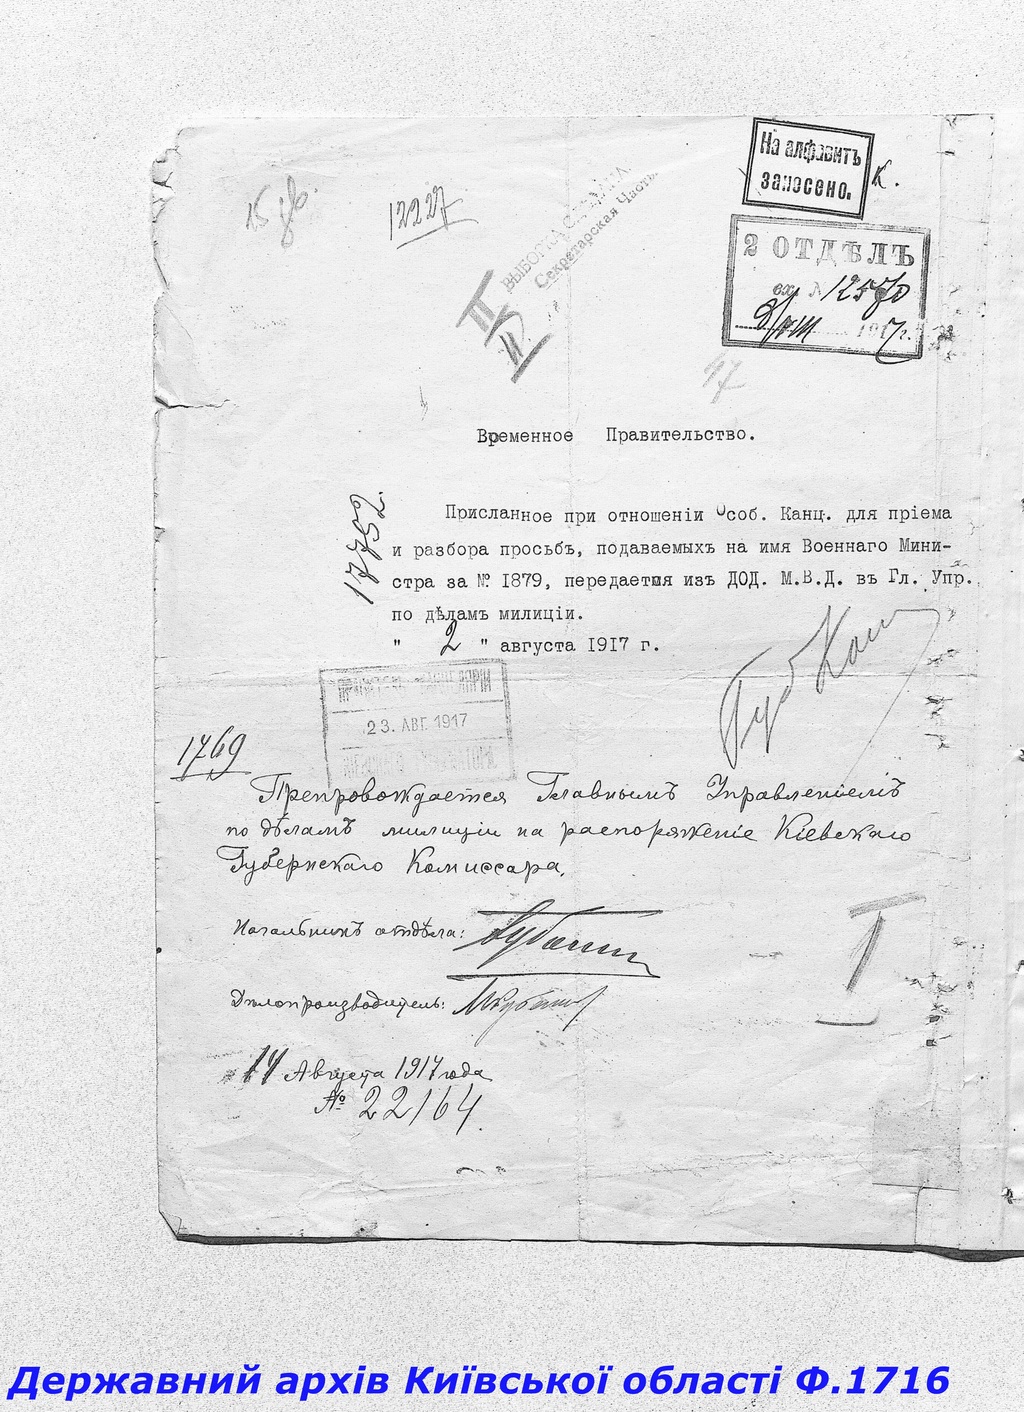 На алфавитъ
занесено.
К.
12227
Секретарская Часть
2 ОТДѢЛЪ
вх. № 12570
1917 г.
47
Временное Правительство.
17752.
Присланное при отношеніи Особ. Канц. для пріема
и разбора просьбъ, подаваемыхъ на имя Военнаго Мини-
стра за № 1879, передается изъ ДОД. М.В.Д. въ Гл. Упр.
по дѣламъ милиціи.
" 2 " августа 1917 г.
Губ Ком
23. АВГ. 1917
1769
Препровождается Главнымъ Управленіемъ
по дѣламъ милиціи на распоряженіе Кіевскаго
Губернскаго Комиссара.
Начальникъ отдѣла:
Дѣлопроизводитель:
Августа 1917 года
№ 22164.
I
Державний архів Київської області Ф.1716